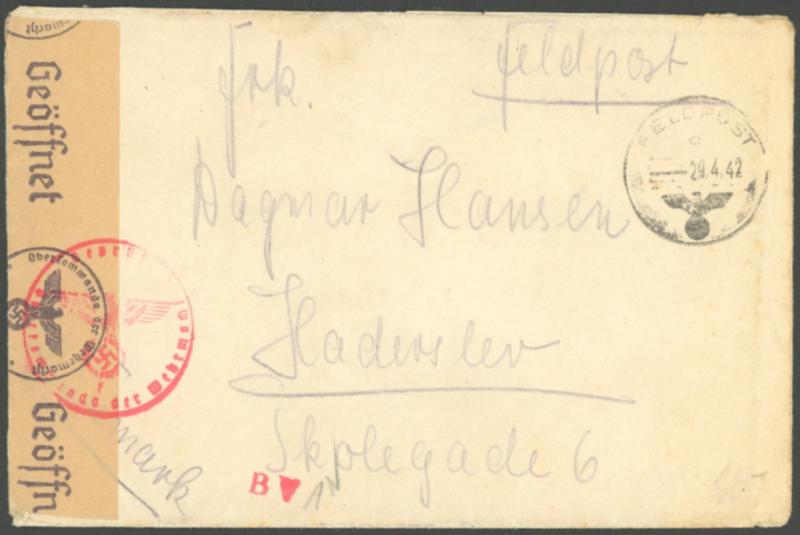 Frk. Feldpost
Dagmar Hansen
Haderslev
Skolegade 6
mark
FELDPOST
29.4.42
Geöffnet
Oberkommando der Wehrmacht
Geprüft
Oberkommando der Wehrmacht
Geöffn
B